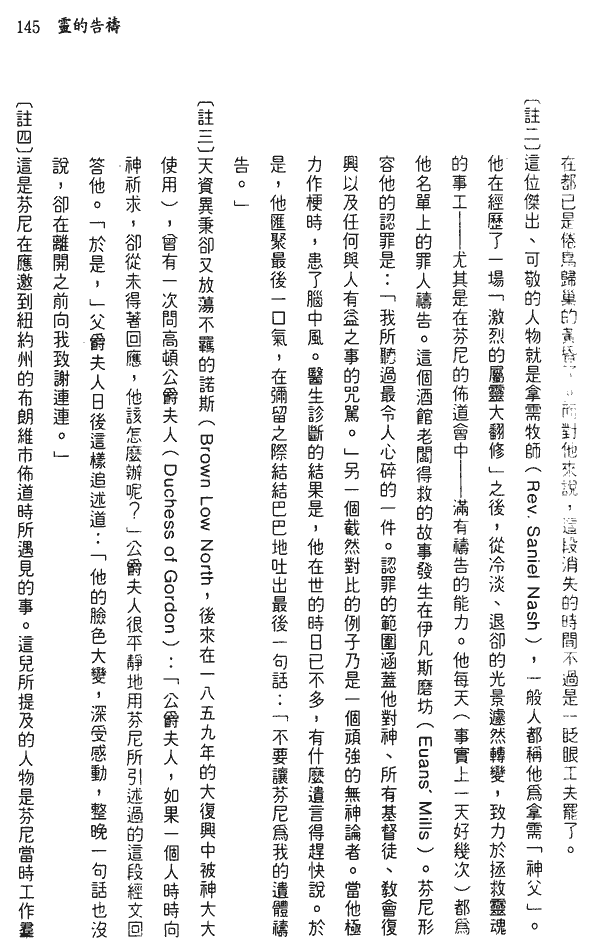 145 靈的告禱
在都已是倦鳥歸巢的黃昏了。而對他來說，這段消失的時間不過是一眨眼工夫罷了。
〔註二〕這位傑出、可敬的人物就是拿需牧師（Rev. Saniel Nash），一般人都稱他爲拿需「神父」。
他在經歷了一場「激烈的屬靈大翻修」之後，從冷淡、退卻的光景遽然轉變，致力於拯救靈魂
的事工——尤其是在芬尼的佈道會中——滿有禱告的能力。他每天（事實上一天好幾次）都爲
他名單上的罪人禱告。這個酒館老闆得救的故事發生在伊凡斯磨坊（Euans’ Mills）。芬尼形
容他的認罪是：「我所聽過最令人心碎的一件。認罪的範圍涵蓋他對神、所有基督徒、敎會復
興以及任何與人有益之事的咒罵。」另一個截然對比的例子乃是一個頑強的無神論者。當他極
力作梗時，患了腦中風。醫生診斷的結果是，他在世的時日已不多，有什麼遺言得趕快說。於
是，他匯聚最後一口氣，在彌留之際結結巴巴地吐出最後一句話：「不要讓芬尼爲我的遺體禱
告。」
〔註三〕天資異秉卻又放蕩不羈的諾斯（Brown Low North，後來在一八五九年的大復興中被神大大
使用），曾有一次問高頓公爵夫人（Duchess of Gordon）：「公爵夫人，如果一個人時時向
神祈求，卻從未得著回應，他該怎麼辦呢？」公爵夫人很平靜地用芬尼所引述過的這段經文回
答他。「於是，」父爵夫人日後這樣追述道：「他的臉色大變，深受感動，整晚一句話也沒
說，卻在離開之前向我致謝連連。」
〔註四〕這是芬尼在應邀到紐約州的布朗維市佈道時所遇見的事。這兒所提及的人物是芬尼當時工作羣